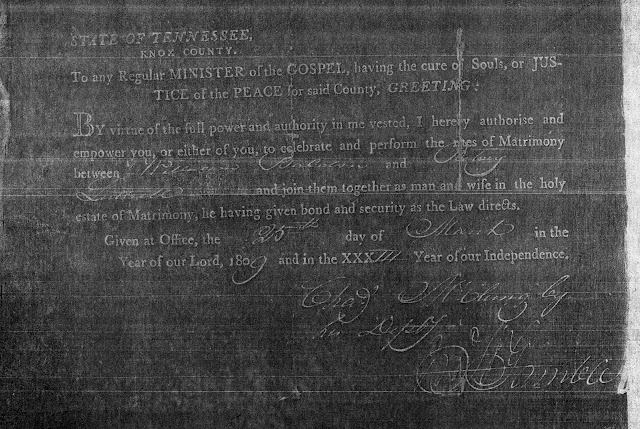 STATE OF TENNESSEE,
KNOX COUNTY.
To any Regular MINISTER of the GOSPEL, having the cure of Souls, or JUS-
TICE of the PEACE for said County, GREETING:
BY virtue of the full power and authority in me vested, I hereby authorise and
empower you, or either of you, to celebrate and perform the rites of Matrimony
between William and
and join them together as man and wife in the holy
estate of Matrimony, he having given bond and security as the Law directs.
Given at Office, the 25th day of March in the
Year of our Lord, 1809 and in the XXXIII Year of our Independence.
Chas McClung by
his Depty